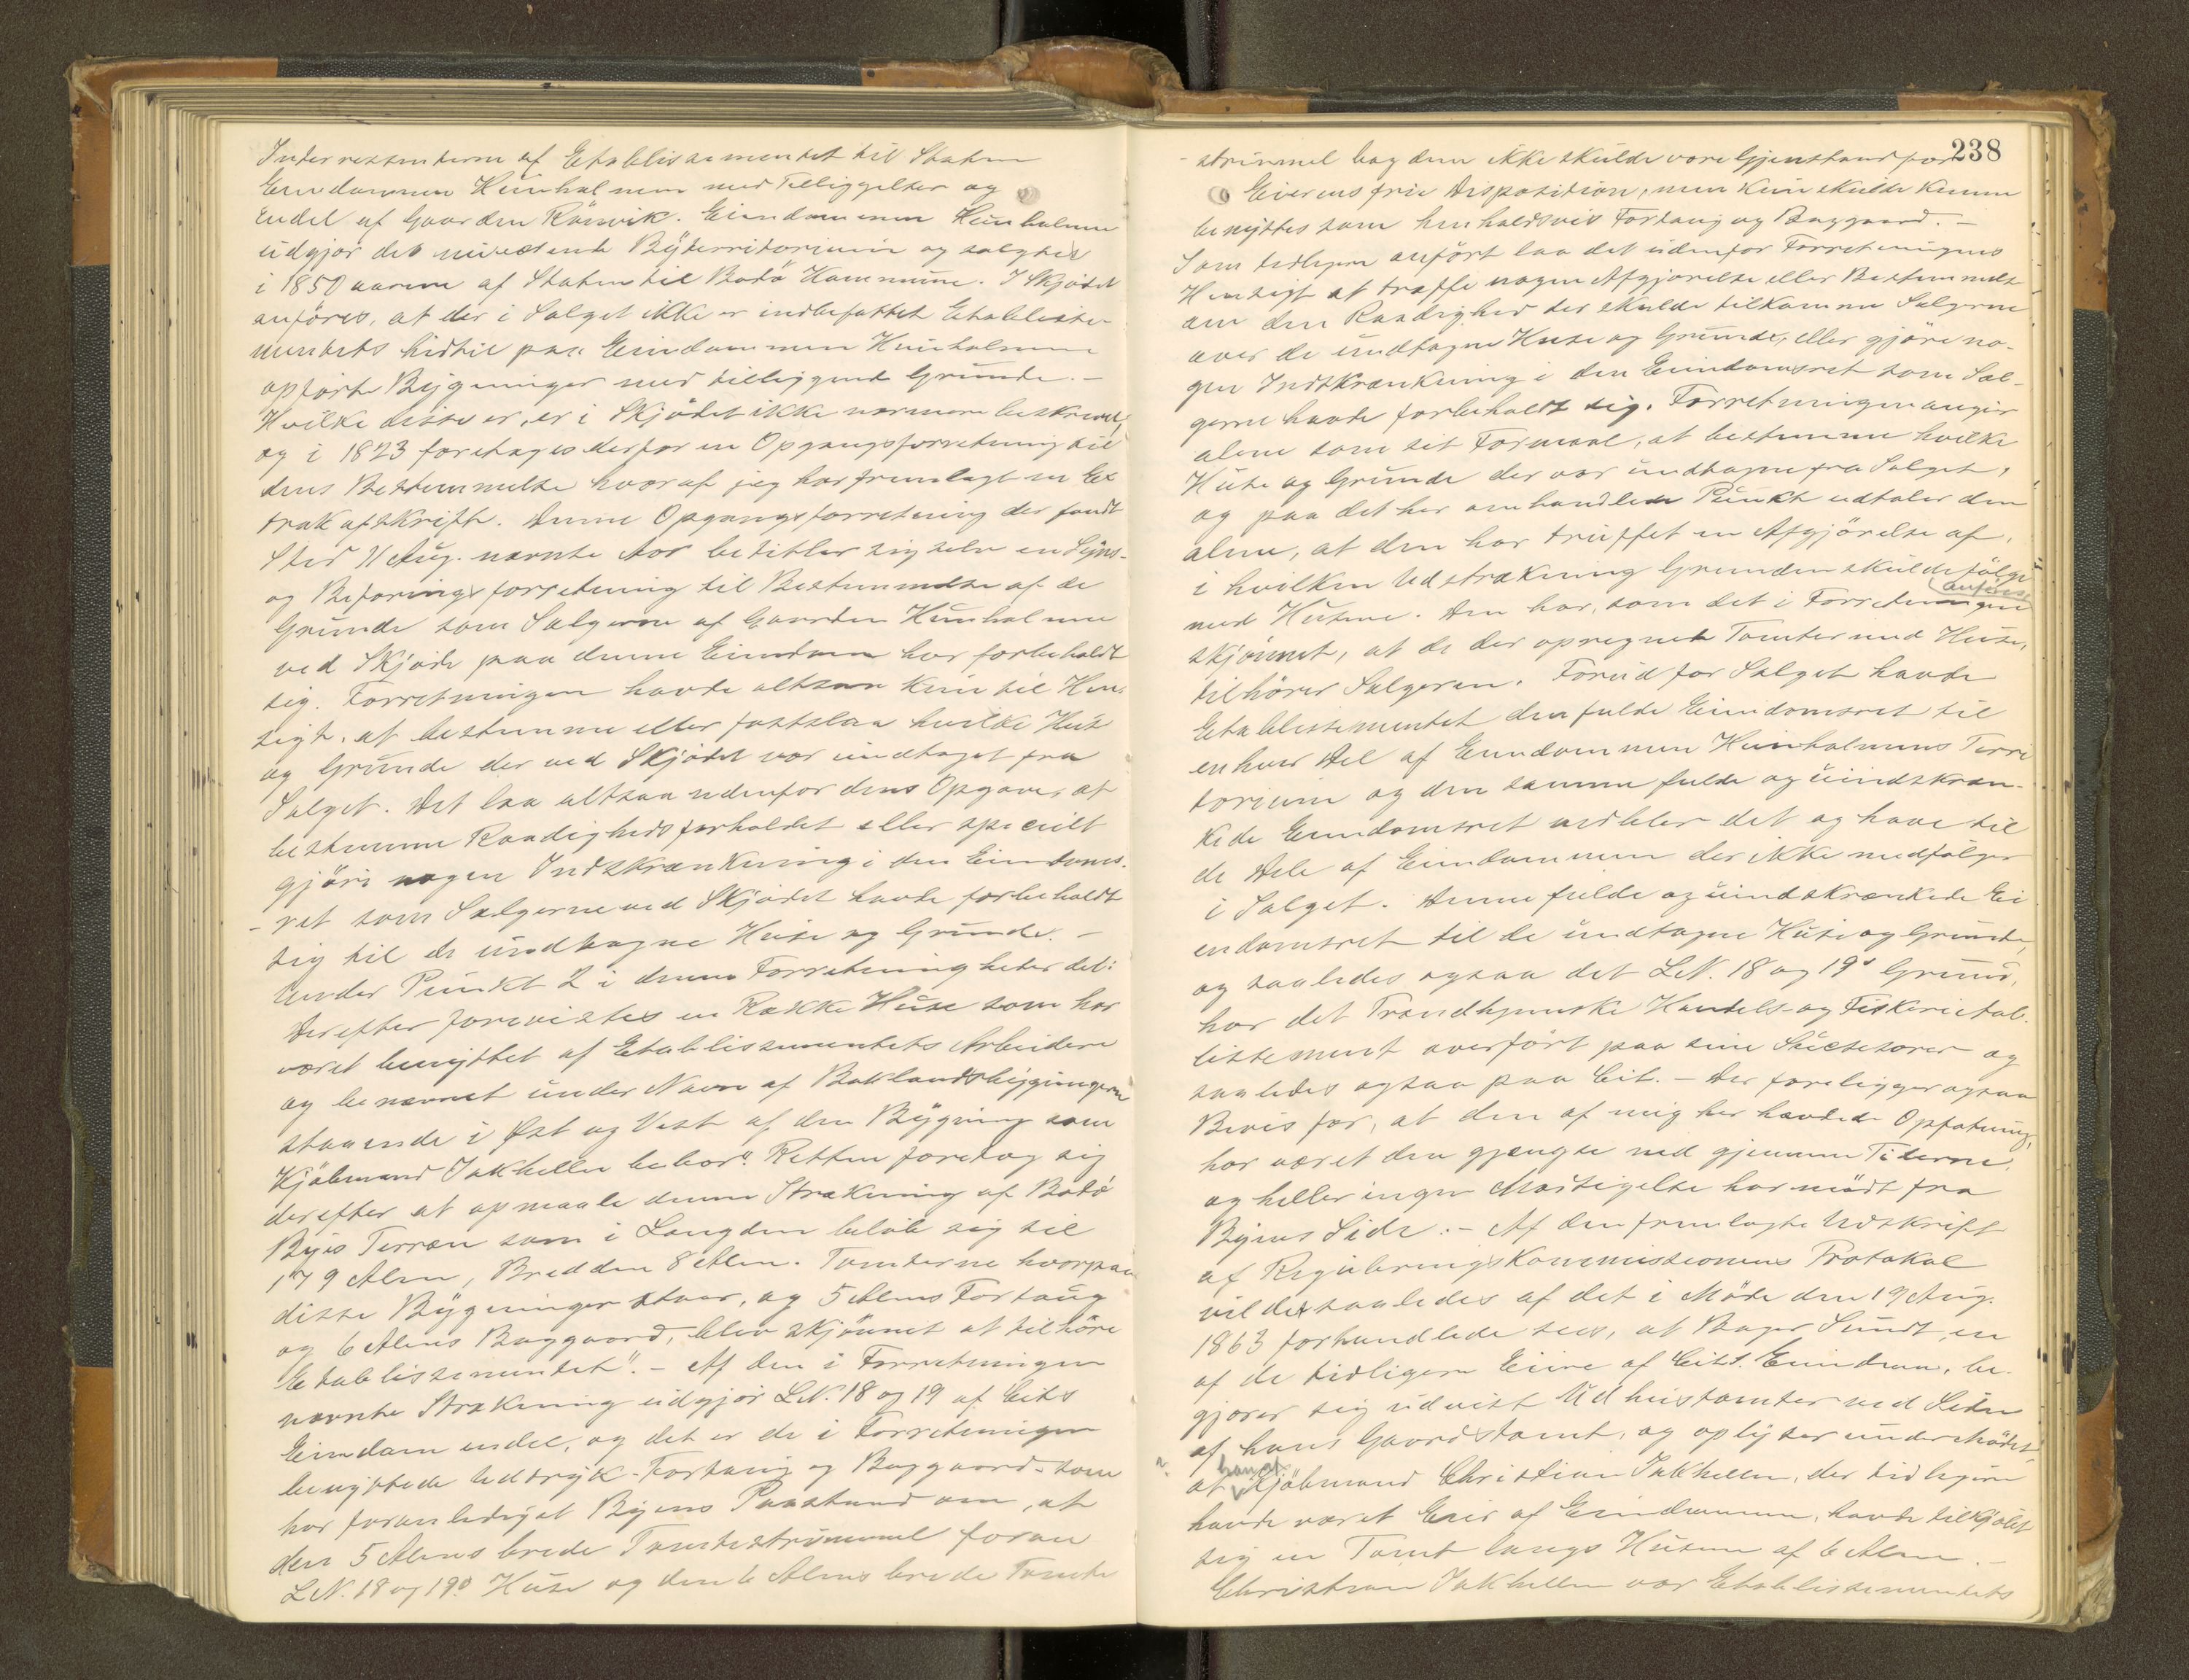 Interessenterne af Etablissementet til Staten
Eiendommen Hunholmen med Tilliggelser og
endel af Gaarden Rönvik. Eiendommen Hunholmen
udgjør det nuværende Byterritorium og solgtes
i 1850 aarene af Staten til Bodö Kommune. I Skjödet
anföres, at der i Salget ikke er indbefattet Etablisse-
mentets hidtil paa Eiendommen Hunholmen
opförte Bygninger med tilliggende Grunde. -
Hvilke disse er, er i Skjödet ikke nærmere beskrevet,
og i 1823 foretages derfor en Opgangsforretning til
dens Bestemmelse hvoraf jeg har fremlagt en Ex
trakt afskrift. Denne Opgangsforretning der fandt
Sted 11 Aug. nævnte Aar betitler sig selv en Syns-
og Befaringsforretning til Bestemmelse af de
Grunde som Sælgerne af Gaarden Hunholmen
ved Skjöde paa denne Eiendom har forbeholdt
sig. Forretningen havde altsaa kun til Hen-
sigt. at bestemme eller fastslaa hvilke Huse
og Grunde der ved Skjödet var undtaget fra
Salget. Det laa altsaa udenfor dens Opgave, at
bestemme Raadighedsforholdet eller specielt
gjöre nogen Indskrænkning i den Eiendoms-
- ret som Sælgerne ved Skjödet havde forbeholdt
sig til de undtagne Huse og Grunde. -
Under Punkt 2 i denne Forretning heder det:
Derefter forevistes en Række Huse som har
været benyttet af Etablissementets Arbeidere
og benævnt under Navn af Baklandsbygningerne
staaende i Øst og Vest af den Bygning som
Kjøbmand Jakhelln bebor". Retten foretog sig
derefter at opmaale denne Strækning af Bodö
Byes Terræn som i Længden beløb sig til
179 Alen, Bredden 8 Alen. Tomterne hvorpaa
disse Bygninger staar, og 5 Alens Fortaug
og 6 Alens Baggaard, blev skjönnet at tilhöre
Etablissementet". - Af den i Forretningen
nævnte Strækning udgjør L.N. 18 og 19 af Cits
Eiendom endel, og det er de i Forretningen
benyttede Udtryk - Fortaug og Baggaard - som
har foranlediget Byens Paastand om, at
den 5 Alens brede Tomtestrimmel foran
L.N. 18 og 19s Huse og den 6 Alens brede Tomte
238
- strimmel bag dem ikke skulde være Gjenstand for
Eierens frie Disposition, men kun skulde kunne
benyttes som henholdsvis Fortaug og Baggaard. -
Som tidligere anført laa det udenfor Forretningens
Hensigt at træffe nogen Afgjørelse eller Bestemmelse
om den Raadighed der skulde tilkomme Sælgerne
over de undtagne Huse og Grunde, eller gjöre no-
gen Indskrænkning i den Eiendomsret som Sæl-
gerne havde forbeholdt sig. Forretningen angir
alene som sit Formaal, at bestemme hvilke
Huse og Grunde der var undtagne fra Salget,
og paa det her omhandlede Punkt udtaler den
alene, at den har truffet en Afgjörelse af,
i hvilken Udstrækning Grunden skulde fölge
med Husene. Den har, som det i Forretningen anföres
skjönnet, at de der opregnede Tomter med Huse,
tilhörer Sælgeren. Forud for Salget havde
Etablissementet den fulde Eiendomsret til
enhver Del af Eiendommen Hunholmens Terri
torium og den samme fulde og uindskræn-
kede Eiendomsret vedblev det og have til
de Dele af Eiendommen der ikke medfölger
i Salget. Denne fulde og uindskrænkede Ei
endomsret til de undtagne Huse og Grunde,
og saaledes ogsaa det L.N. 18 og 19s Grund,
har det Trondhjemske Handels- og Fiskerietab-
lissement overfört paa sine Successorer og
saaledes ogsaa paa Cit. - Der foreligger ogsaa
Bevis for, at den af mig her hævdede Opfatning,
har været den gjængse ned gjennem Tiderne,
og heller ingen Modsigelse har mödt fra
Byens Side. - Af den fremlagte Udskrift
af Reguleringskommissionens Protokol
vil det saaledes af det i Möde den 19 Aug.
1863 forhandlede sees, at Bager Sundt, en
af de tidligere Eiere af Cits. Eiendom, be-
gjærer sig udvist Udhustomter ved Siden
af hans Gaardstomt, og oplyser under Mödet,
at hans Kjöbmand Christian Jakhelln, der tidligere
havde været Eier af Eiendommen, havde tilkjöbt
sig en Tomt langs Husene af 6 Alen. -
Christian Jakhelln var Etablissementets